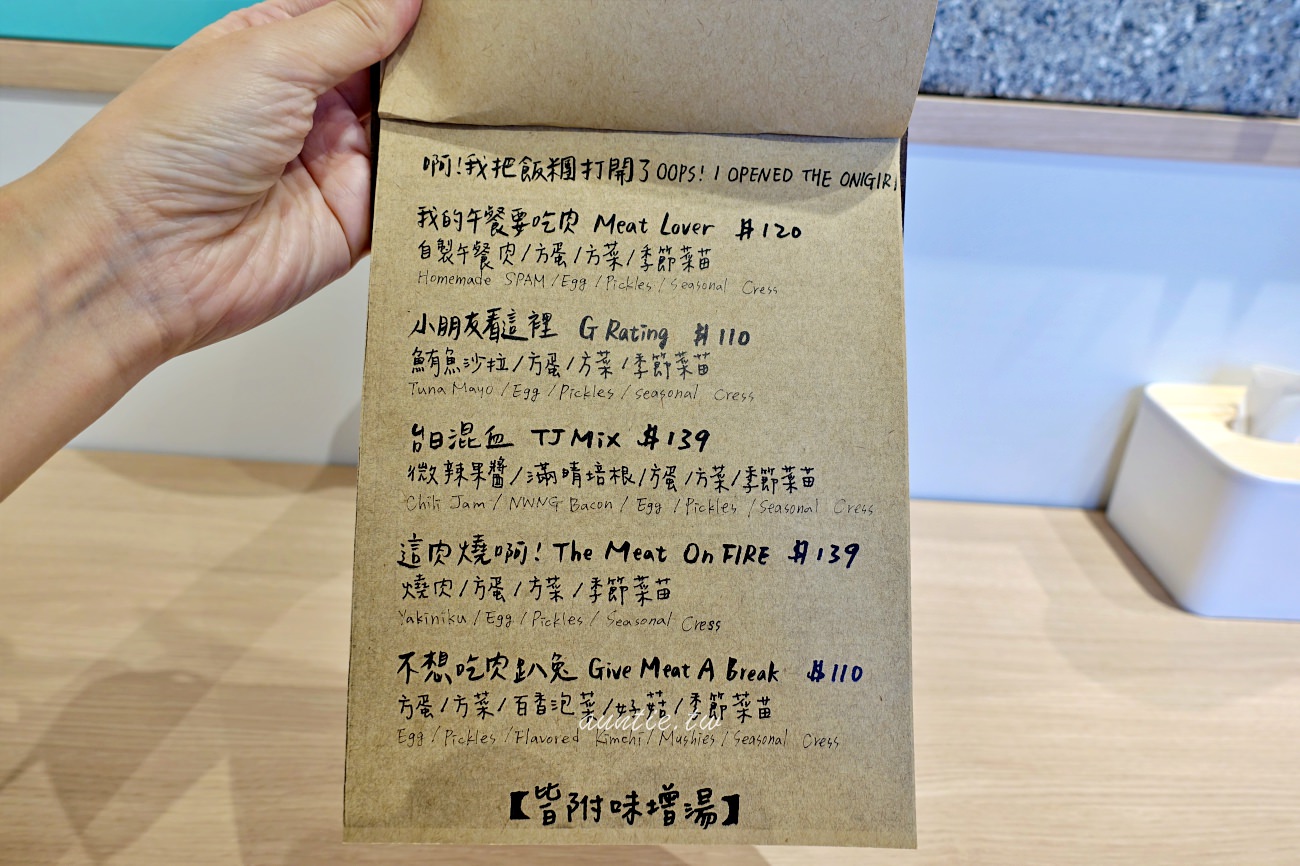 啊!我把飯糰打開了 OOPS! I OPENED THE ONIGIRI
我的午餐要吃肉 Meat Lover $120
自製午餐肉/方蛋/方菜/季節菜苗
Homemade SPAM/Egg/Pickles/Seasonal Cress
小朋友看這裡 G Rating $110
鮪魚沙拉/方蛋/方菜/季節菜苗
Tuna Mayo/Egg/Pickles/seasonal Cress
台日混血 TJ Mix $139
微辣果醬/滿晴培根/方蛋/方菜/季節菜苗
Chili Jam/NWNG Bacon/Egg/Pickles/Seasonal Cress
這肉燒啊! The Meat On FIRE $139
燒肉/方蛋/方菜/季節菜苗
Yakiniku/Egg/Pickles/Seasonal Cress
不想吃肉趴兔 Give Meat A Break $110
方蛋/方菜/百香泡菜/好菇/季節菜苗
Egg/Pickles/Flavored Kimchi/Mushies/Seasonal Cress
auntie.tw
【皆附味增湯】